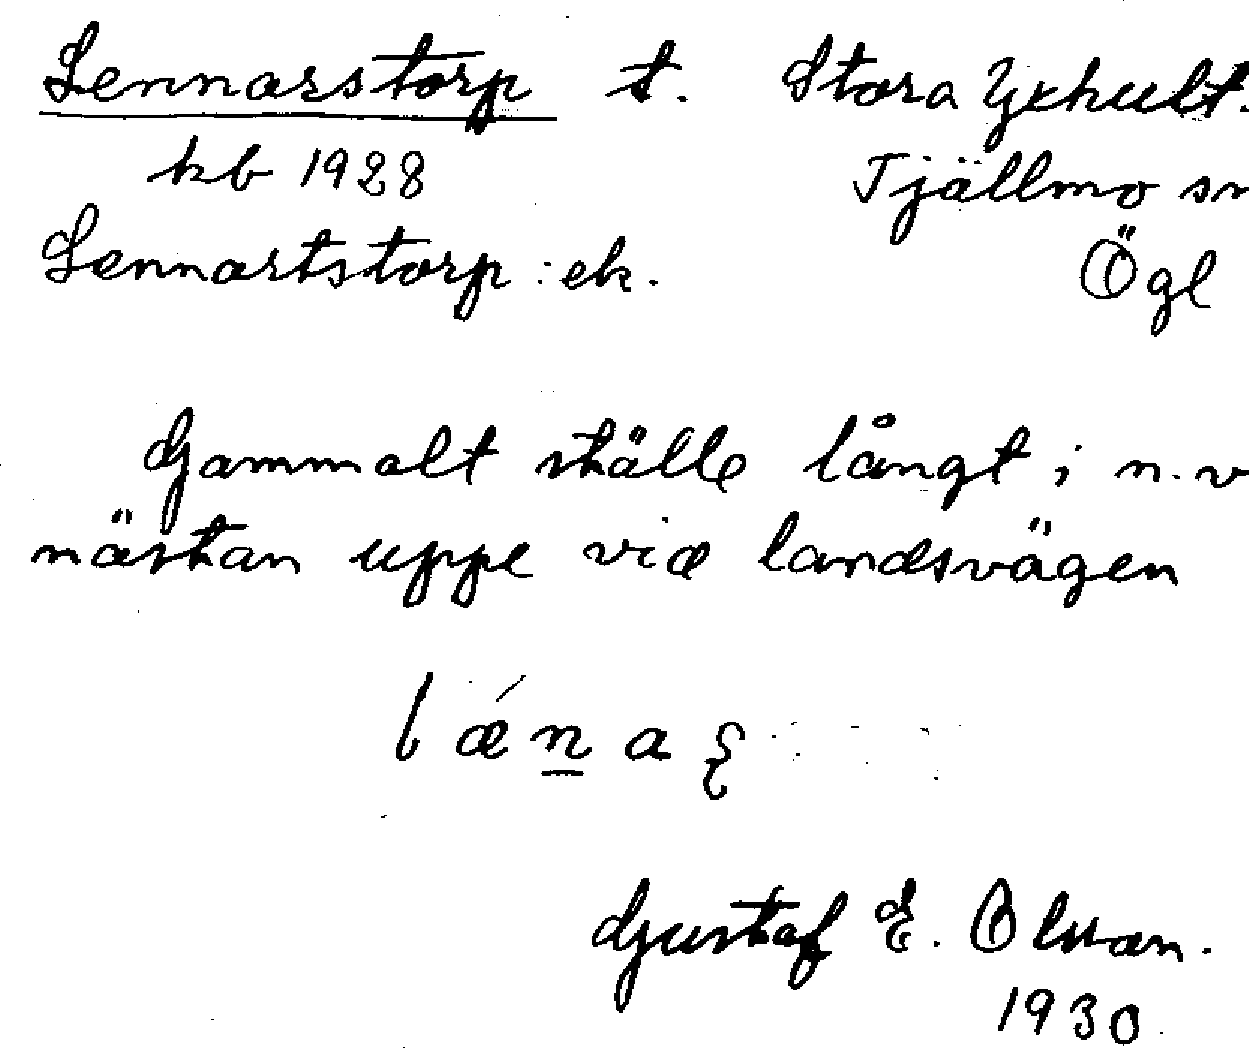 Lennarstorp t. Stora Yxhult.
kb 1928 Tjällmo sn
Lennartstorp : ek. Ögl
Gammalt ställe långt i n.v
nästan uppe vid landsvägen
lǽn̲a
Gustaf E. Olsson.
1930